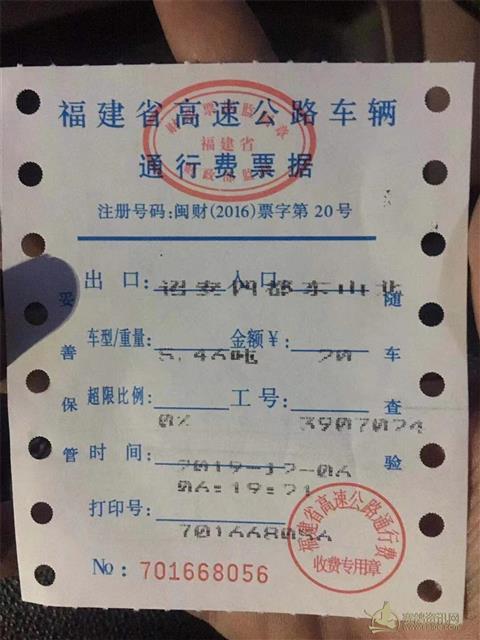 福建省高速公路车辆
通行费票据
福建省
注册号码:闽财(2016)票字第20号
出口: 入口:
诏安四都 东山北
车型/重量: 金额¥:
5.46吨 20
超限比例: 工号:
0% 3907024
时间:
2019-12-06
06:19:21
打印号:
701668056
No: 701668056
妥善保管
随车查验
福建省高速公路通行费
收费专用章